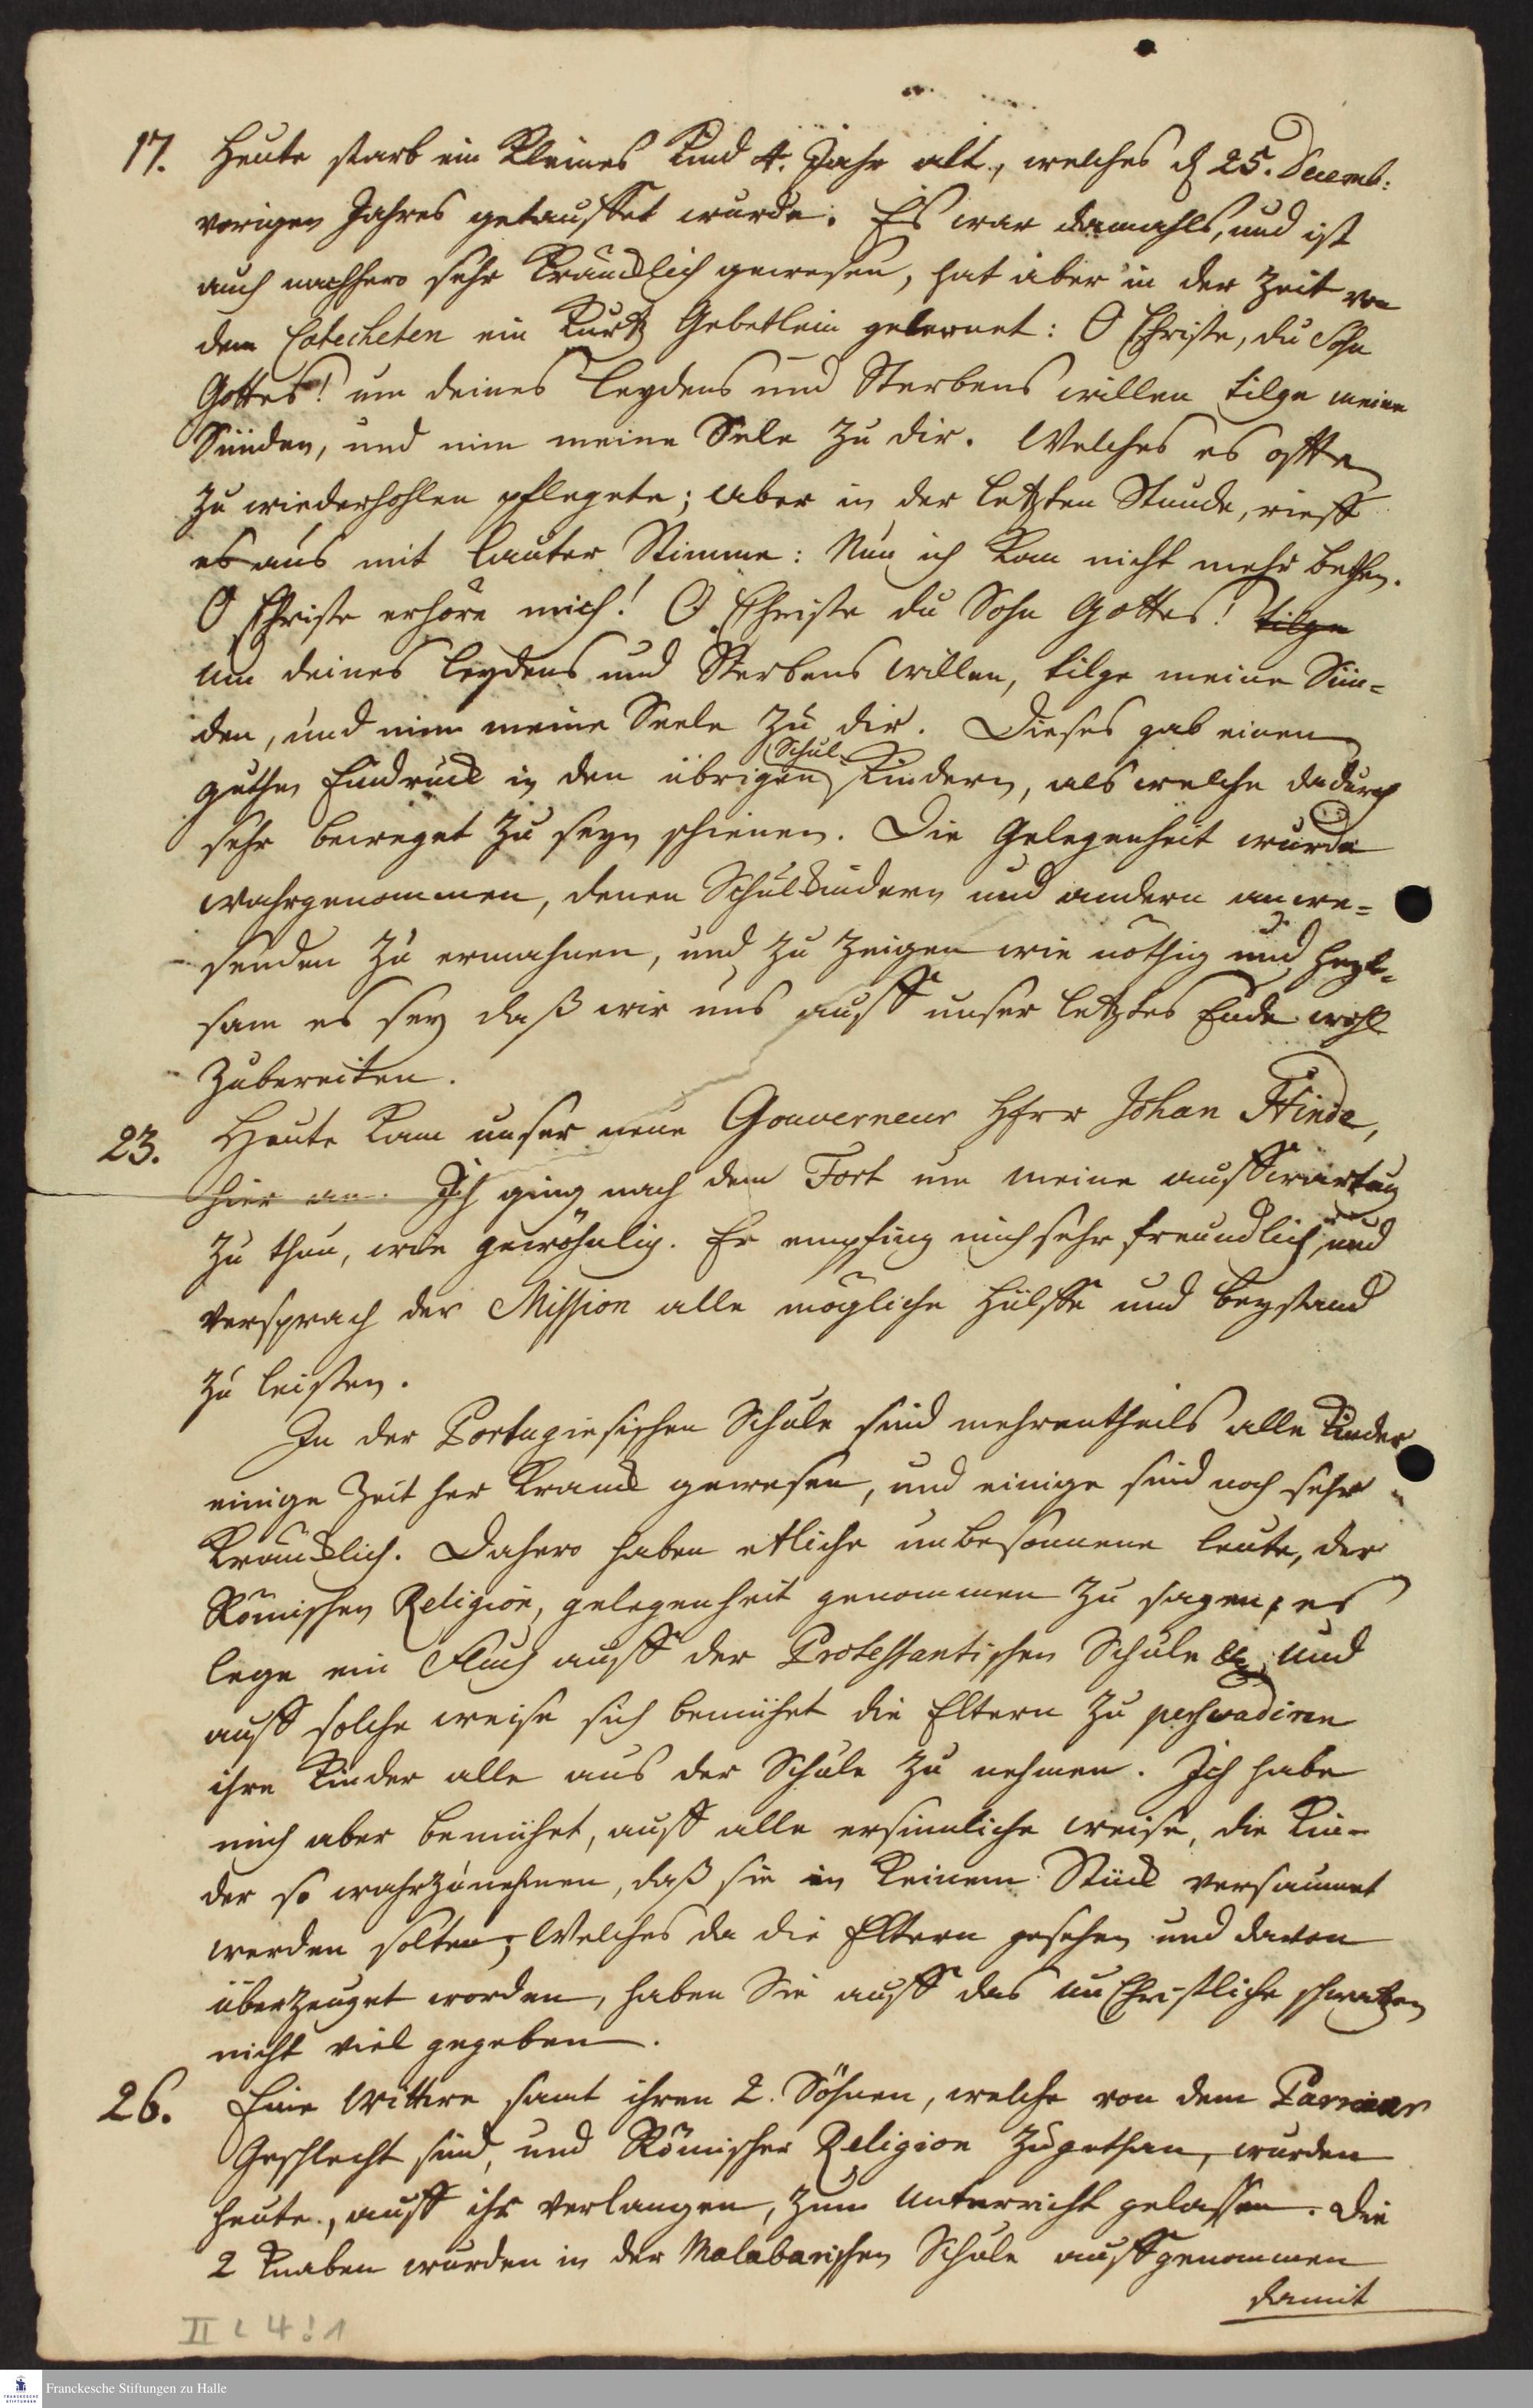 17. Heute starb ein Kleines Kind 4. Jahr alt, welches d 25. Decemb:
vorigen Jahres getauffet wurde. Es war damahls, und ist
auch nachhero sehr kräncklich gewesen, hat aber in der Zeit von
dem Catecheten ein kurtz Gebetlein gelernet: O Christe, du Sohn
Gottes! um deines Leydens und Sterbens willen tilge meine
Sünden, und nim meine Sele zu dir. Welches es offte
zu wiederhohlen pflegete; aber in der letzten Stunde, rieff
es aus mit lauter Stimme: Nun ich kan nicht mehr bethen.
O Christe erhöre mich! O Christe du Sohn Gottes! tilge
um deines Leydens und Sterbens willen, tilge meine Sün-
den, und nim meine Seele zu dir. Dieses gab einen
guthen Eindruck in den übrigen Schul-Kindern, als welche dadurch
sehr beweget zu seyn schienen. Die Gelegenheit wurde
wahrgenommen, denen Schulkindern und andern anwe-
senden zu ermahnen, und zu zeigen wie nöthig und heyl-
sam es sey daß wir uns auff unser letztes Ende wohl
zubereiten.
23. Heute kam unser neue Gouverneur Herr Johan Hinde,
hier an. Ich ging nach dem Fort um meine auffwartung
zu thun, wie gewöhnlich. Er empfing mich sehr freundlich, und
versprach der Mission alle mögliche Hülffe und beystand
zu leisten.
In der Portugiesischen Schule sind mehrentheils alle Kinder
einige Zeit her kranck gewesen, und einige sind noch sehr
kräncklich. Dahero haben etliche unbesonnene Leute, der
Römischen Religion, gelegenheit genommen zu sagen, es
lege ein Fluch auff der Protestantischen Schule und
auff solche weise sich bemühet die Eltern zu perswadiren
ihre Kinder alle aus der Schule zu nehmen. Ich habe
mich aber bemühet, auff alle ersinnliche weise, die Kin-
der so wahrzunehmen, daß sie in keinem Stück versäumet
werden solten; Welches da die Eltern gesehen und davon
überzeuget worden, haben Sie auff das unChristliche schwatzen
nicht viel gegeben.
26. Eine Wittwe samt ihren 2. Söhnen, welche von dem
Geschlecht sind, und Römischer Religion zugethan, wurden
heute, auff ihr verlangen, zum Unterricht gelassen. Die
2 Knaben wurden in der Malabarischen Schule auffgenommen
damit
II C 4:1
Franckesche Stiftungen zu Halle